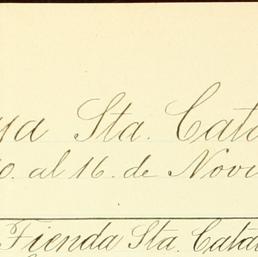 ya Sta. Cata
0. al 16. de Novi
Tienda Sta. Catal